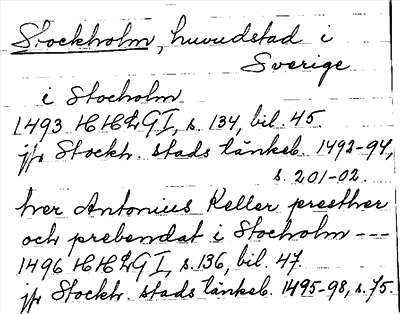 Stockholm, huvudstad i
Sverige
i Stocholm
1493 HHLG I, s. 134, bil. 45.
jfr Stockh. stads tänkeb. 1492-94,
s. 201-02.
her Antonius Keller presther
och prebendat i Stocholm ---
1496 HHLG I, s. 136, bil. 47
jfr Stockh. stads tänkeb. 1495-98, s. 75.